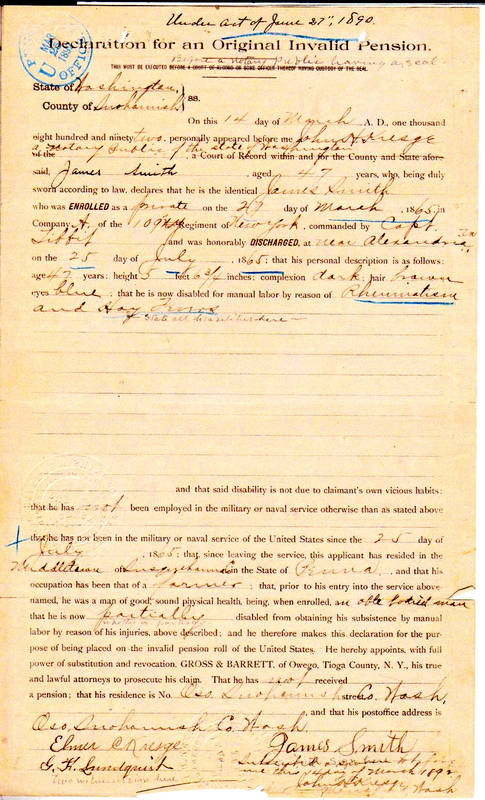 Under act of June 27", 1890.
Declaration for an Original Invalid Pension.
Before a notary public having a seal
THIS MUST BE EXECUTED BEFORE A COURT OF RECORD OR SOME OFFICER THEREOF HAVING CUSTODY OF THE SEAL.
State of Washington,
County of Snohomish } ss.
On this 14 day of March A. D., one thousand
eight hundred and ninety two, personally appeared before me John H. Kresge
a Notary Public of the state of Washington
of the , a Court of Record within and for the County and State afore-
said, James Smith , aged 47 years, who, being duly
sworn according to law, declares that he is the identical James Smith
who was ENROLLED as a private on the 29 day of March , 1865, in
Company A. of the 109th Regiment of New York, commanded by Capt.
and was honorably DISCHARGED, at near Alexandria
on the 25 day of July , 1865; that his personal description is as follows:
age 47 years; height 5 feet 6 3/4 inches; complexion dark; hair brown
eyes blue; that he is now disabled for manual labor by reason of Rheumatism
and
State all disabilities here
and that said disability is not due to claimant's own vicious habits:
that he has not been employed in the military or naval service otherwise than as stated above
that he has not been in the military or naval service of the United States since the 25 day of
July , 1865; that, since leaving the service, this applicant has resided in the
Middletown of Susquehanna in the State of Penna, and that his
occupation has been that of a farmer; that, prior to his entry into the service above
named, he was a man of good, sound physical health, being, when enrolled, an able bodied man
that he is now partially disabled from obtaining his subsistence by manual
labor by reason of his injuries, above described; and he therefore makes this declaration for the pur-
pose of being placed on the invalid pension roll of the United States. He hereby appoints, with full
power of substitution and revocation, GROSS & BARRETT, of Owego, Tioga County, N. Y., his true
and lawful attorneys to prosecute his claim. That he has not received
a pension; that his residence is No. Oso, Snohomish street Co. Wash,
and that his postoffice address is
Oso, Snohomish Co. Wash.
Elmer C Kresge James Smith
G. H. Lundquist Subscribed & sworn to before
me this 14 day of March 1892
John H Kresge
Wash